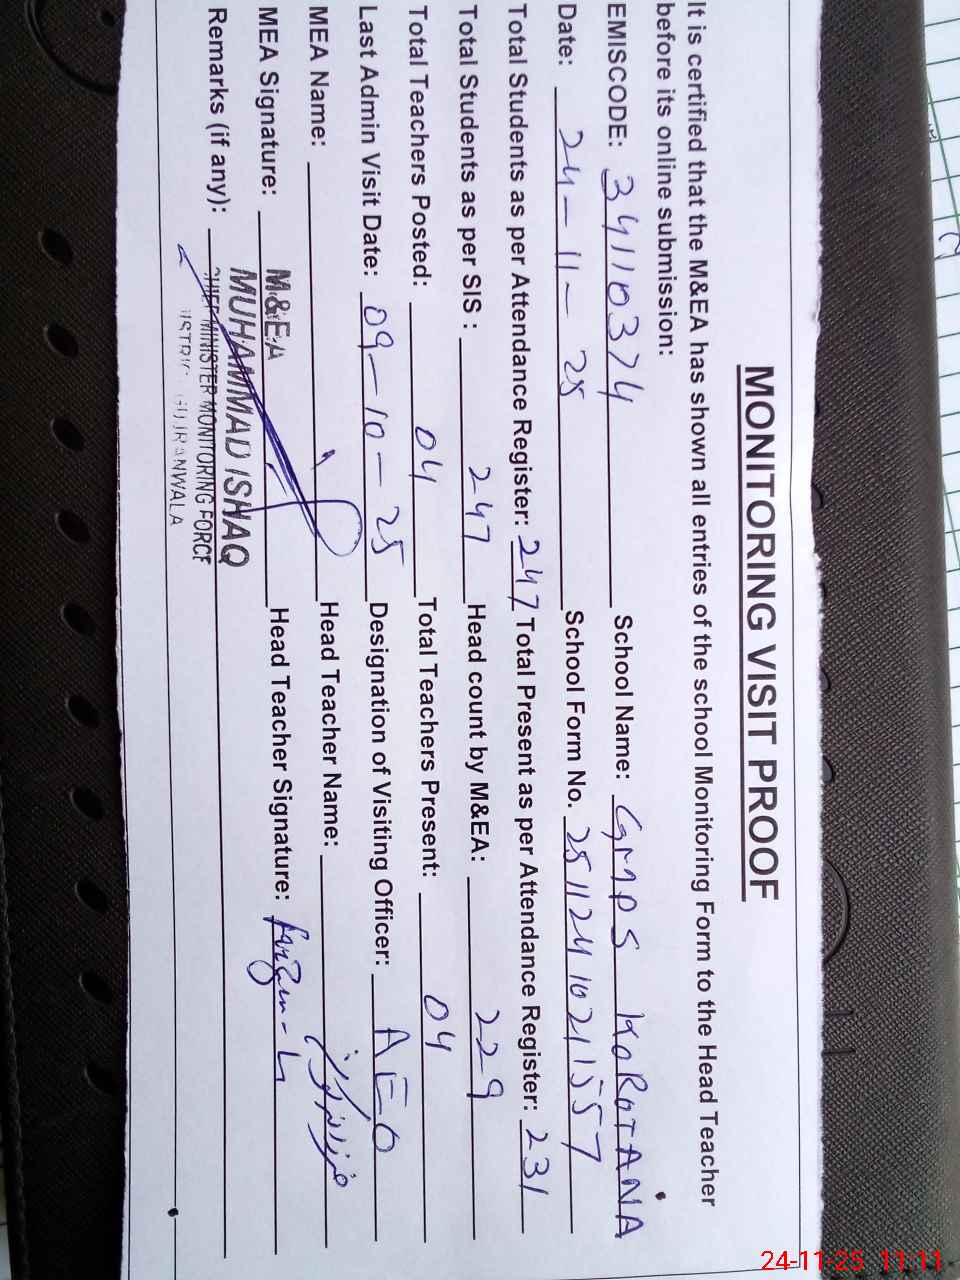 MONITORING VISIT PROOF
It is certified that the M&EA has shown all entries of the school Monitoring Form to the Head Teacher
before its online submission:
EMISCODE: 34110374 School Name: GMPS KOROTANA
Date: 24-11-25 School Form No. 251124102 1557
Total Students as per Attendance Register: 247 Total Present as per Attendance Register: 231
Total Students as per SIS : 247 Head count by M&EA: 229
Total Teachers Posted: 04 Total Teachers Present: 04
Last Admin Visit Date: 09-10-25 Designation of Visiting Officer: AEO
MEA Name: Head Teacher Name:
MEA Signature: M&EA Head Teacher Signature:
MUHAMMAD ISHAQ
Remarks (if any): CHIEF MINISTER MONITORING FORCE
24-11-25 11:11